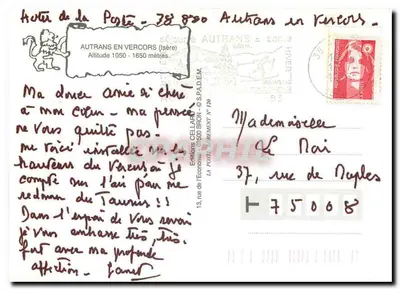 Hotel de la Poste - 38 880 Autrans en Vercors -
AUTRANS EN VERCORS (Isère)
Altitude 1050 - 1650 mètres.
AUTRANS
HIVER
Ma douce amie si chère
à mon Cœur - ma pensée
ne Vous quitte pas -
me voici installée sur les
hauteurs du Vercors - Je
compte sur l'air pour me
redonner du Tonus !!
Dans l'espoir de Vous revoir
je Vous embrasse très, très
fort avec ma profonde
affection - Janet
Editions CELLARD
13, rue de l'Economie - 69500 BRON - © S.P.A.D.E.M.
LA POSTE
Mademoiselle
Le Moi
37, rue de Naples
75008